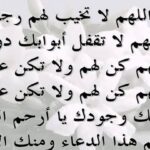 اللهم لا تخيب لهم رج
هم لا تقفل أبوابك دو
هم كن لهم ولا تكن ع
هم كن لهم ولا تكن ع
ك وجودك يا أرحم ا
م هذا الدعاء ومنك ا